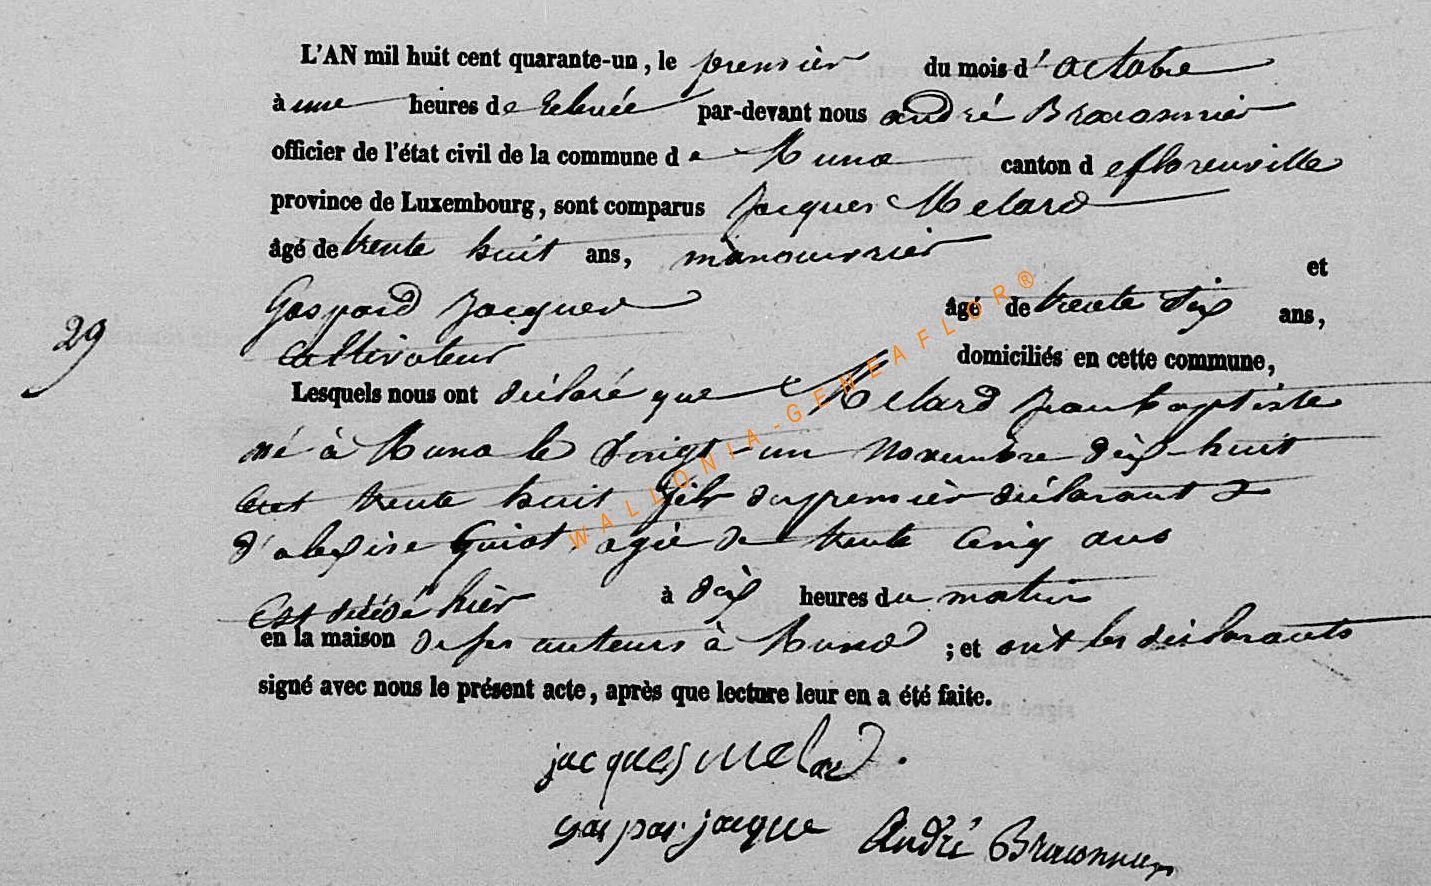 L'AN mil huit cent quarante-un, le premier du mois d'octobre
à une heures de relevée par-devant nous andré Braconnier
officier de l'état civil de la commune de Muno canton de florenville
province de Luxembourg, sont comparus Jacques Melard
âgé de trente huit ans, manouvrier
et
Gaspard Jacques âgé de trente six ans,
29
cultivateur domiciliés en cette commune,
Lesquels nous ont déclaré que Melard jean baptiste
né à Muno le vingt-un novembre dix-huit
cent trente huit fils du premier déclarant &
d'alexise Guiot agée de trente cinq ans
Est décédé hièr à dix heures du matin
en la maison de ses auteurs à Muno ; et ont les déclarants
signé avec nous le présent acte, après que lecture leur en a été faite.
jacques melard.
gaspar jacque André Braconnier
WALLONIA-GENEAFLOR®